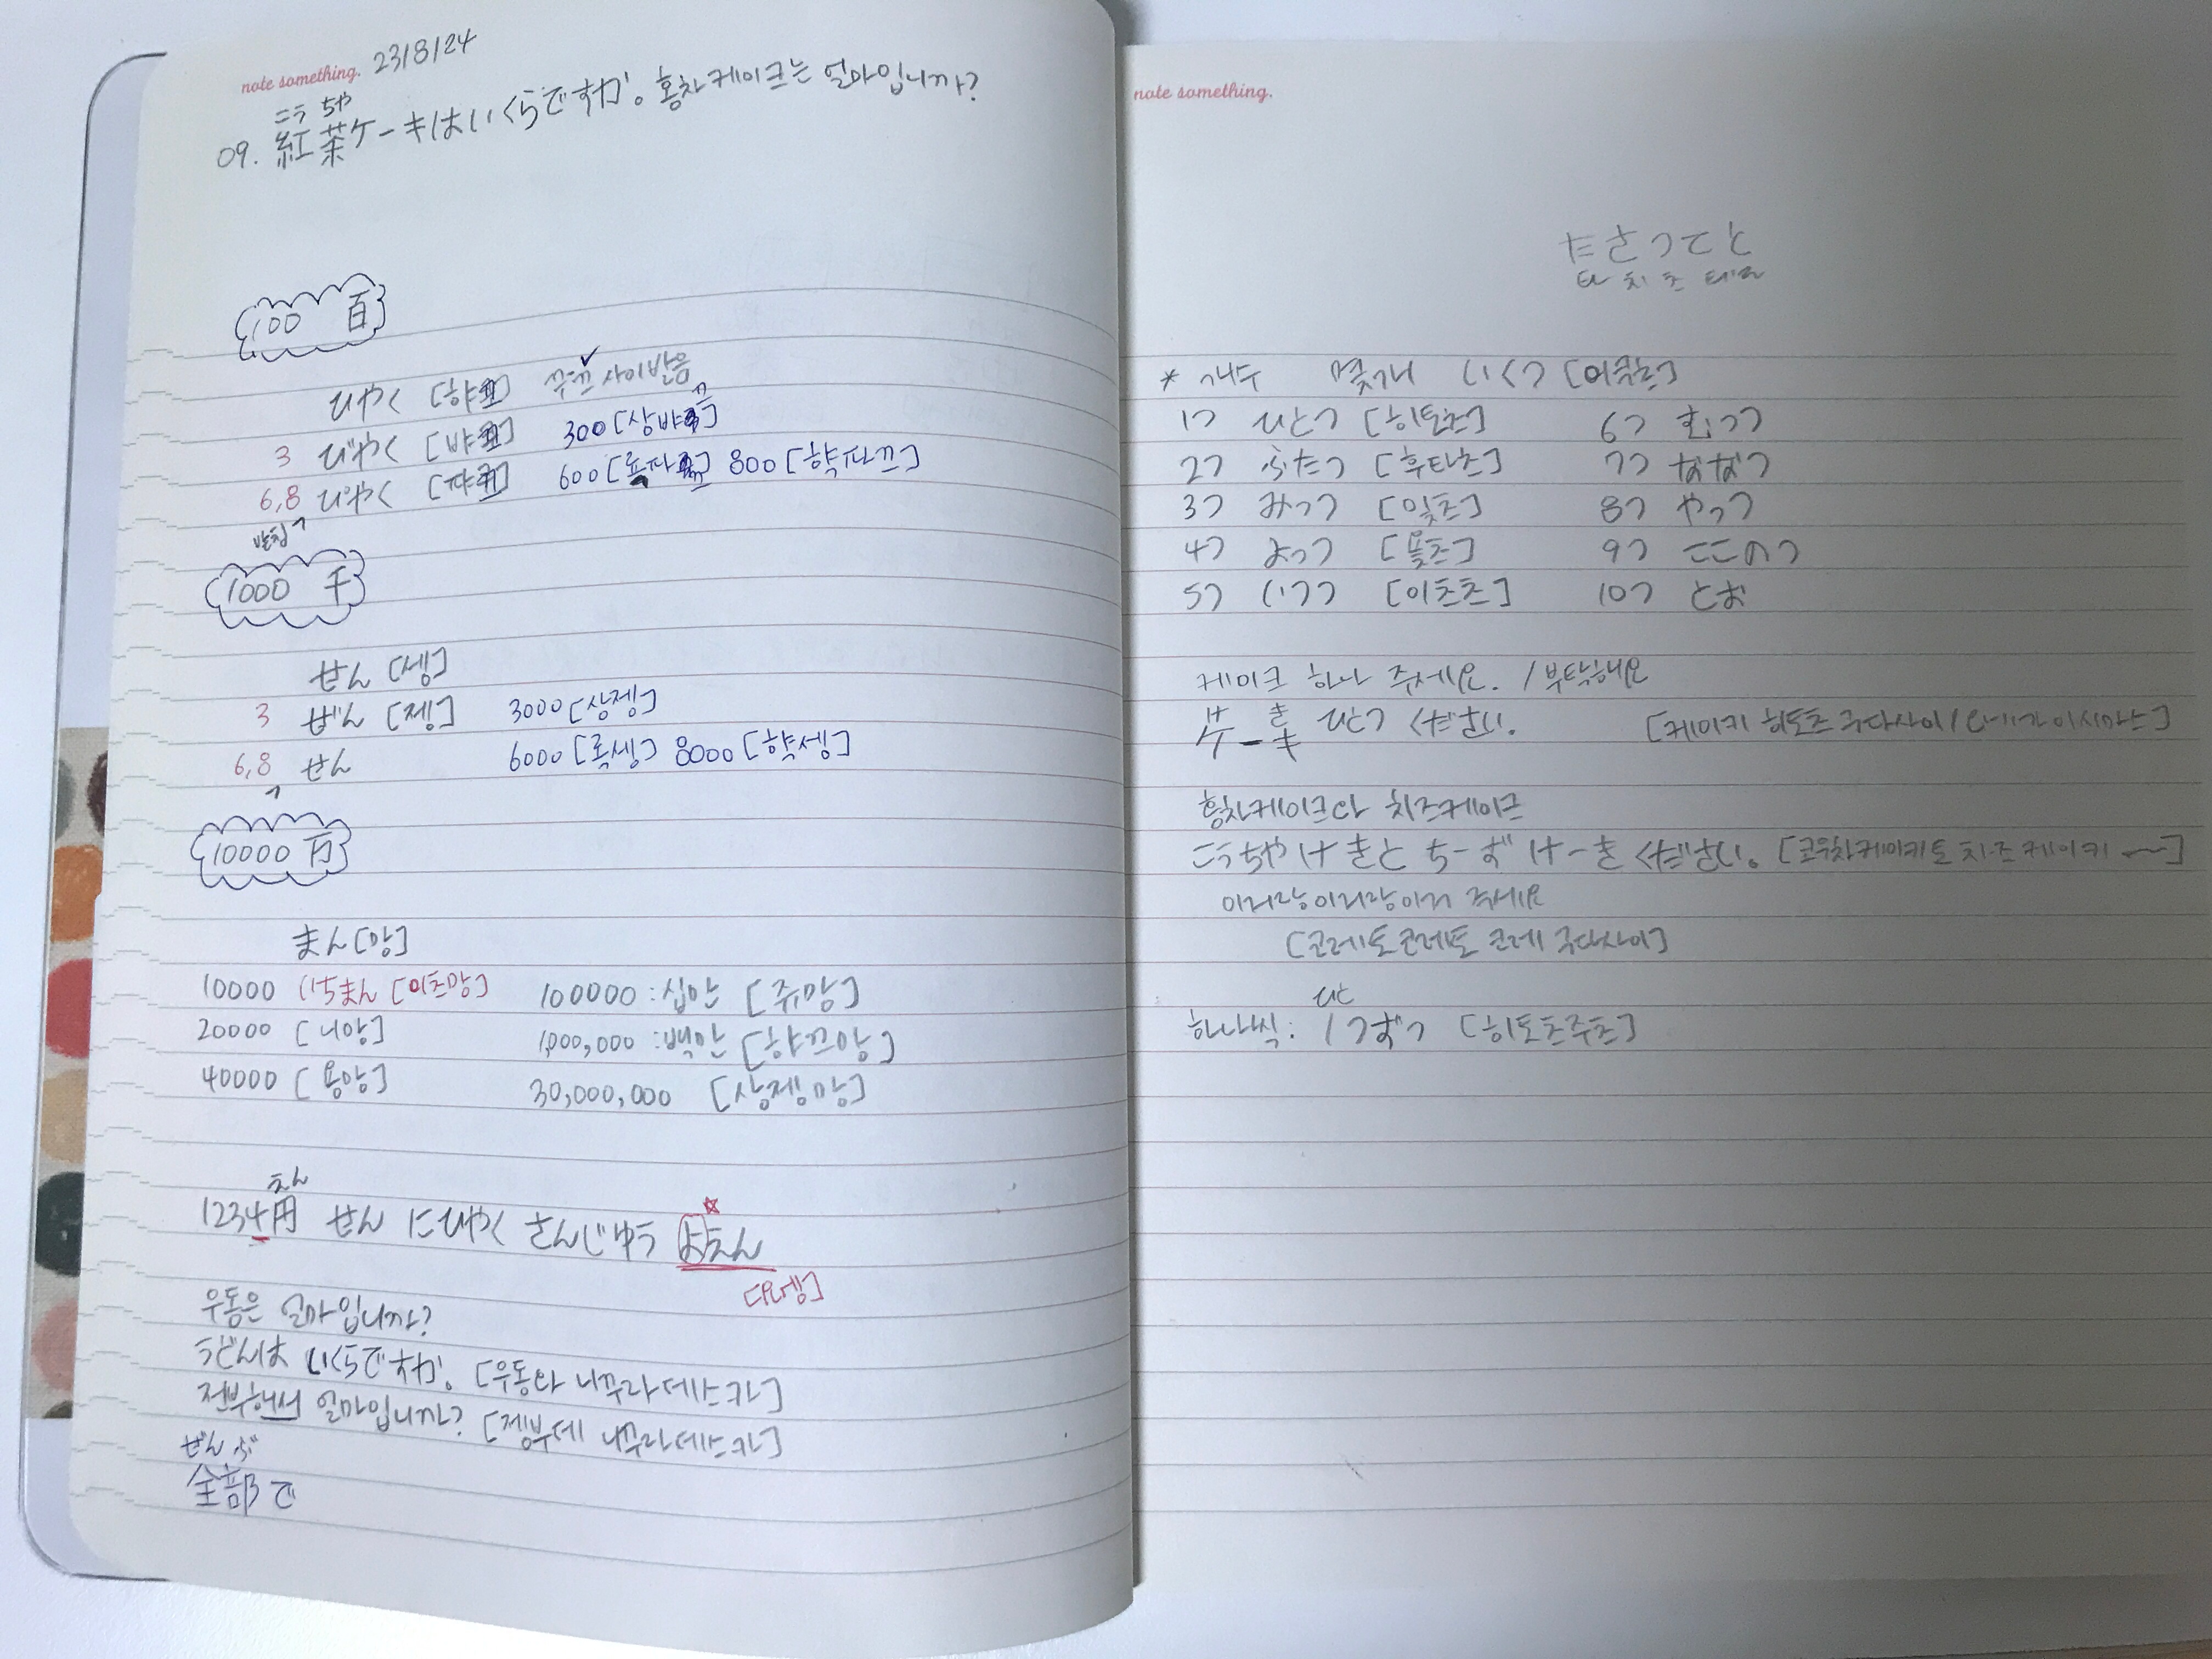 note something. 23/8/24
こう ちゃ
09. 紅茶ケーキはいくらですか。 홍차케이크는 얼마입니까?
100 百
ひゃく [햐끄] 쿠,끄 사이발음
3 びゃく [뱌끄] 300 [상뱌끄]
6,8 ぴゃく [퍄끄] 600 [롭퍄끄] 800 [합퍄끄]
받침ㄱ
1000 千
せん [셍]
3 ぜん [젱] 3000 [상젱]
6,8 せん 6000 [록셍] 8000 [핫셍]
ㄱ
10000 万
まん [망]
10000 いちまん [이츠망] 100000 : 십만 [쥬망]
20000 [니망] 1,000,000 : 백만 [햐끄망]
40000 [욤망] 30,000,000 [상젱망]
えん
1234円 せん にひゃく さんじゅう よえん
[요엥]
우동은 얼마입니까?
うどんは いくらですか。 [우동와 니꾸라데스카]
전부해서 얼마입니까? [젱부데 니꾸라데스카]
ぜん ぶ
全部で
note something.
たちつてと
타 치 츠 테 토
* 개수 몇개 いくつ [이쿠츠]
1つ ひとつ [히토츠] 6つ むっつ
2つ ふたつ [후타츠] 7つ ななつ
3つ みっつ [밋츠] 8つ やっつ
4つ よっつ [욧츠] 9つ ここのつ
5つ いつつ [이츠츠] 10つ とお
케이크 하나 주세요. / 부탁해요
け き
ケーキ ひとつ ください. [케이키 히토츠 쿠다사이 / 오네가이시마스]
홍차케이크와 치즈케이크
こうちゃ けきと ちーず けーき ください。 [코우차케이키토 치즈케이키 ~]
이거랑이거랑이거 주세요
[코레토코레토 코레 쿠다사이]
ひと
하나씩: 1つずつ [히토츠주츠]